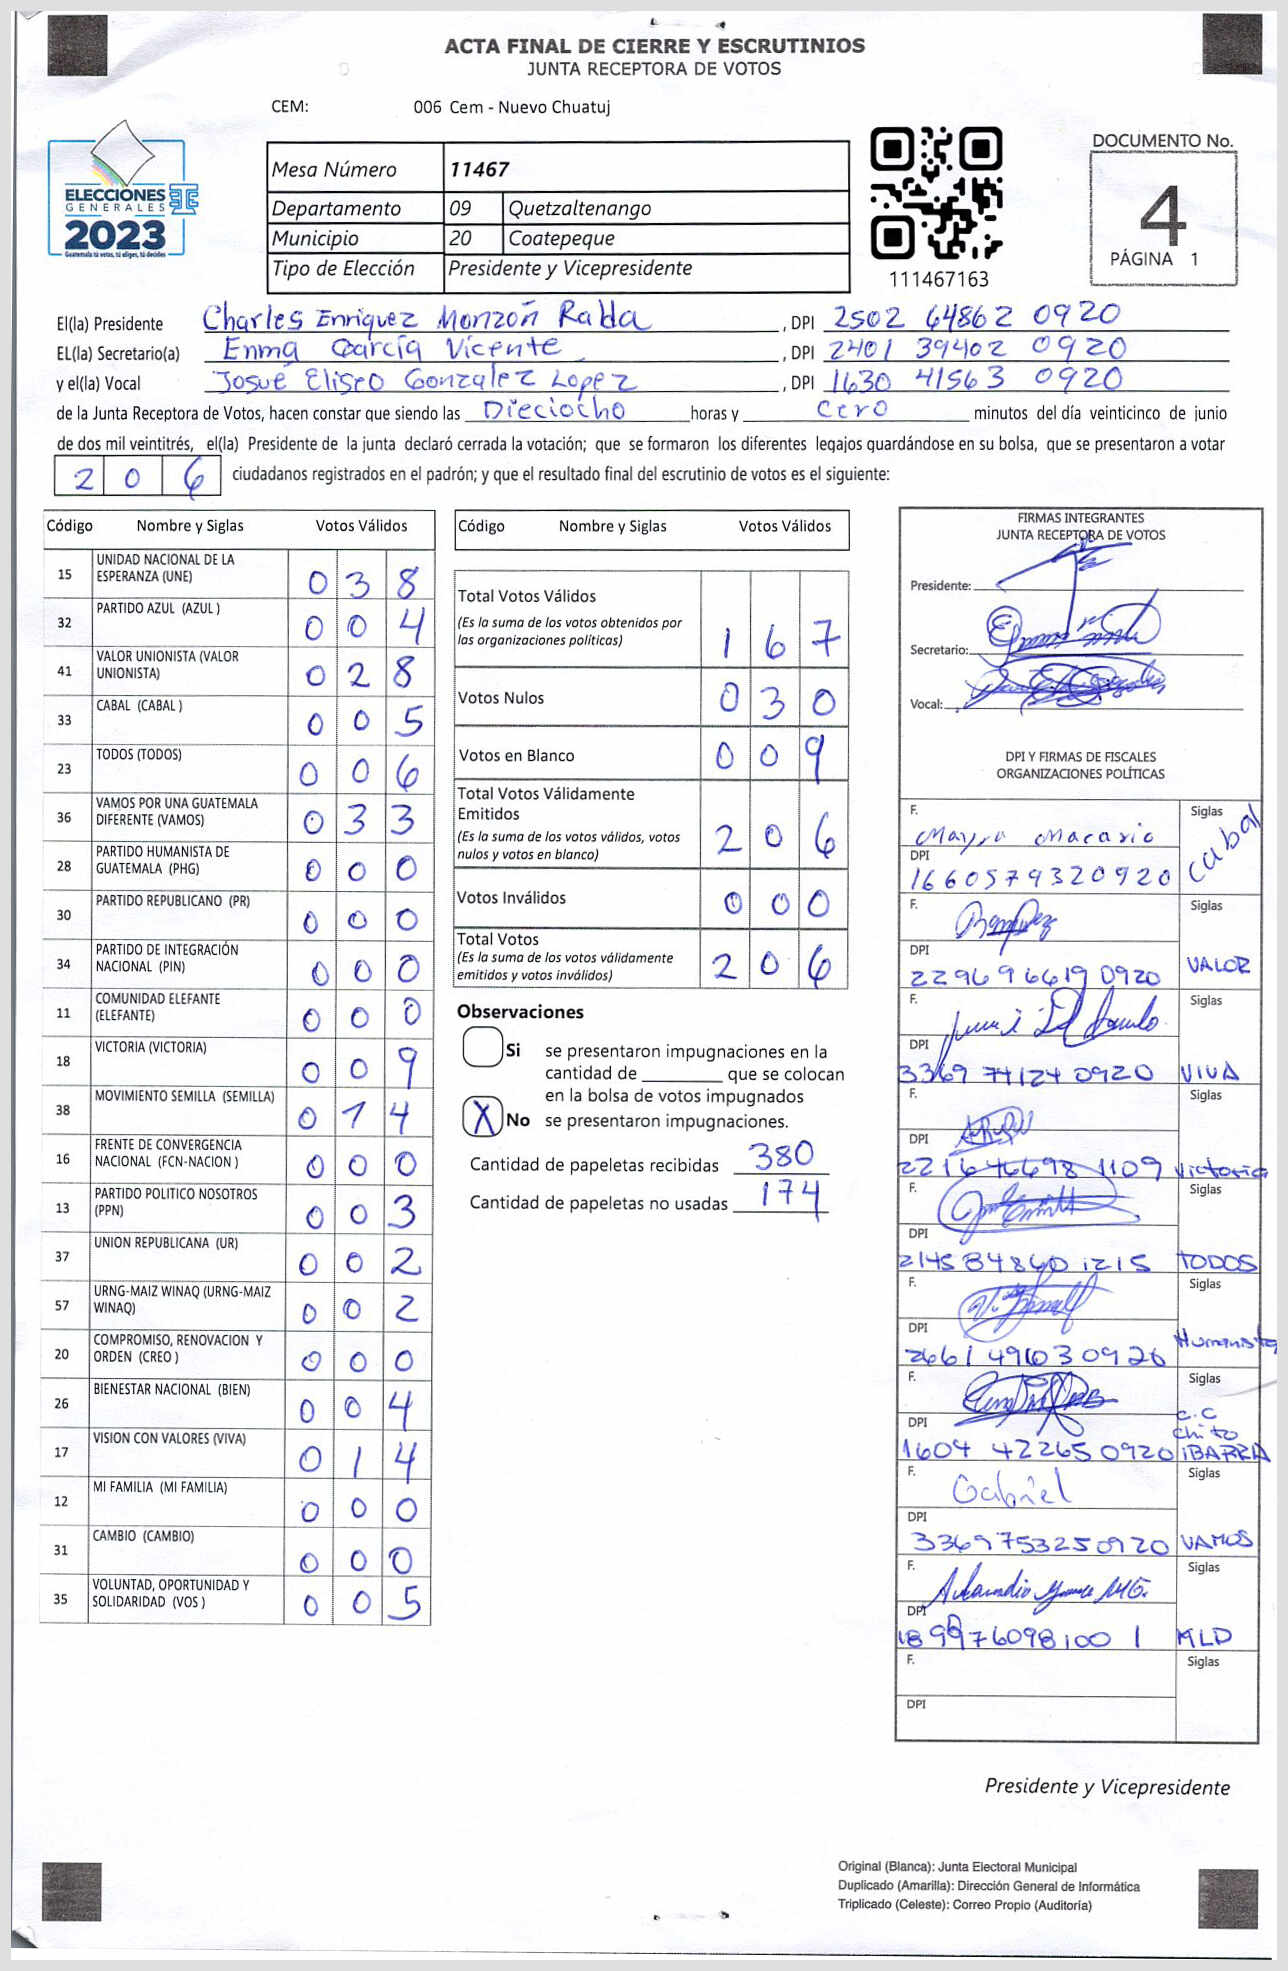 ACTA FINAL DE CIERRE Y ESCRUTINIOS
JUNTA RECEPTORA DE VOTOS
CEM: 006 Cem - Nuevo Chuatuj
ELECCIONES
GENERALES
2023
Guatemala tú votas, tú eliges, tú decides
Mesa Número 11467
Departamento 09 Quetzaltenango
Municipio 20 Coatepeque
Tipo de Elección Presidente y Vicepresidente
111467163
DOCUMENTO No.
4
PÁGINA 1
El(la) Presidente Charles Enriquez Monzón Ralda, DPI 2502 64862 0920
EL(la) Secretario(a) Enma García Vicente, DPI 2401 39402 0920
y el(la) Vocal Josué Eliseo Gonzalez Lopez, DPI 1630 41563 0920
de la Junta Receptora de Votos, hacen constar que siendo las Dieciocho horas y cero minutos del día veinticinco de junio
de dos mil veintitrés, el(la) Presidente de la junta declaró cerrada la votación; que se formaron los diferentes legajos guardándose en su bolsa, que se presentaron a votar
206 ciudadanos registrados en el padrón; y que el resultado final del escrutinio de votos es el siguiente:
Código Nombre y Siglas Votos Válidos
15 UNIDAD NACIONAL DE LA ESPERANZA (UNE) 038
32 PARTIDO AZUL (AZUL ) 004
41 VALOR UNIONISTA (VALOR UNIONISTA) 028
33 CABAL (CABAL ) 005
23 TODOS (TODOS) 006
36 VAMOS POR UNA GUATEMALA DIFERENTE (VAMOS) 033
28 PARTIDO HUMANISTA DE GUATEMALA (PHG) 000
30 PARTIDO REPUBLICANO (PR) 000
34 PARTIDO DE INTEGRACIÓN NACIONAL (PIN) 000
11 COMUNIDAD ELEFANTE (ELEFANTE) 000
18 VICTORIA (VICTORIA) 009
38 MOVIMIENTO SEMILLA (SEMILLA) 014
16 FRENTE DE CONVERGENCIA NACIONAL (FCN-NACION ) 000
13 PARTIDO POLITICO NOSOTROS (PPN) 003
37 UNION REPUBLICANA (UR) 002
57 URNG-MAIZ WINAQ (URNG-MAIZ WINAQ) 002
20 COMPROMISO, RENOVACION Y ORDEN (CREO ) 000
26 BIENESTAR NACIONAL (BIEN) 004
17 VISION CON VALORES (VIVA) 014
12 MI FAMILIA (MI FAMILIA) 000
31 CAMBIO (CAMBIO) 000
35 VOLUNTAD, OPORTUNIDAD Y SOLIDARIDAD (VOS ) 005
Código Nombre y Siglas Votos Válidos
Total Votos Válidos 167
(Es la suma de los votos obtenidos por
las organizaciones políticas)
Votos Nulos 030
Votos en Blanco 009
Total Votos Válidamente
Emitidos 206
(Es la suma de los votos válidos, votos
nulos y votos en blanco)
Votos Inválidos 000
Total Votos 206
(Es la suma de los votos válidamente
emitidos y votos inválidos)
Observaciones
Si se presentaron impugnaciones en la
cantidad de ________ que se colocan
en la bolsa de votos impugnados
X No se presentaron impugnaciones.
Cantidad de papeletas recibidas 380
Cantidad de papeletas no usadas 174
FIRMAS INTEGRANTES
JUNTA RECEPTORA DE VOTOS
Presidente:
Secretario:
Vocal:
DPI Y FIRMAS DE FISCALES
ORGANIZACIONES POLÍTICAS
F. Mayra Macario Siglas Cabal
DPI 1660579320920
F. Siglas VALOR
DPI 2296966190920
F. Siglas VIVA
DPI 3369 74124 0920
F. Siglas Victoria
DPI 221646698 1109
F. Siglas TODOS
DPI 2145848601215
F. Siglas Humanista
DPI 2661 49603 0920
F. Siglas C.C Chito IBARRA
DPI 1604 42265 0920
F. Gabriel Siglas VAMOS
DPI 3369753250920
F. Siglas MLD
DPI
F. Siglas
DPI
Presidente y Vicepresidente
Original (Blanca): Junta Electoral Municipal
Duplicado (Amarilla): Dirección General de Informática
Triplicado (Celeste): Correo Propio (Auditoría)